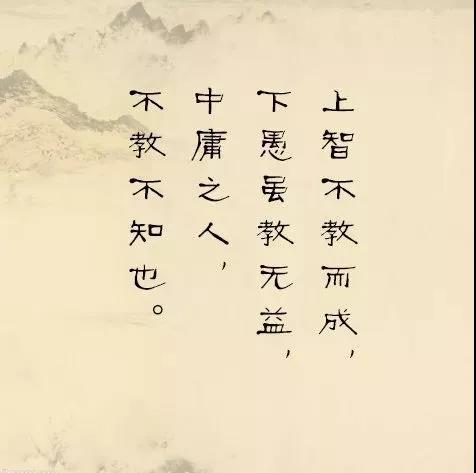 上智不教而成，
下愚虽教无益，
中庸之人，
不教不知也。